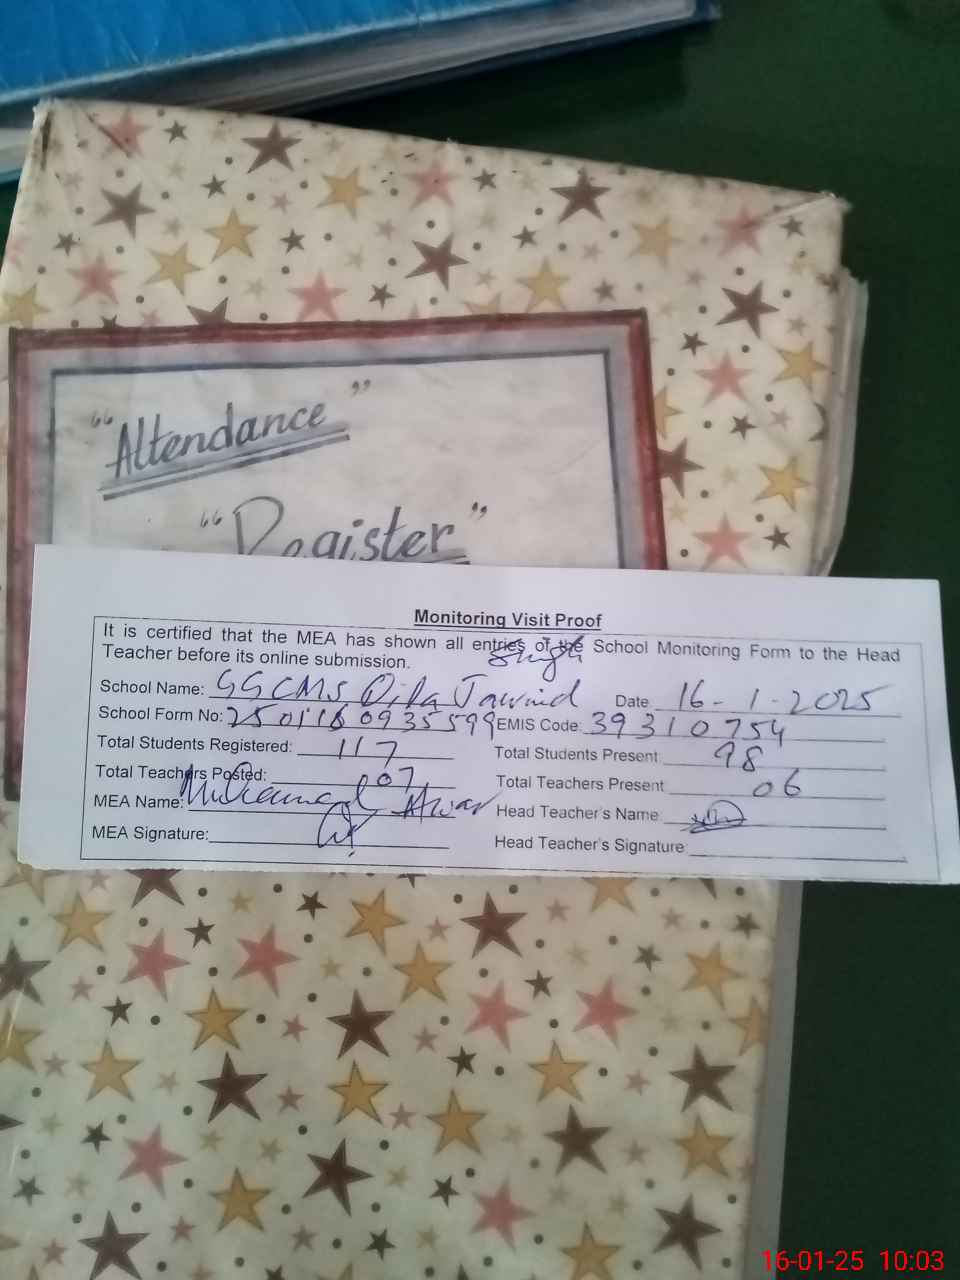 "Attendance"
"Register"
Monitoring Visit Proof
It is certified that the MEA has shown all entries of the School Monitoring Form to the Head
Teacher before its online submission.
Singh
School Name: GGCMS Qila Jawind Date: 16-1-2025
School Form No: 2501160935599 EMIS Code: 39310754
Total Students Registered: 117 Total Students Present: 98
Total Teachers Posted: 07 Total Teachers Present: 06
MEA Name: Muhammad Head Teacher's Name:
MEA Signature: Head Teacher's Signature:
16-01-25 10:03